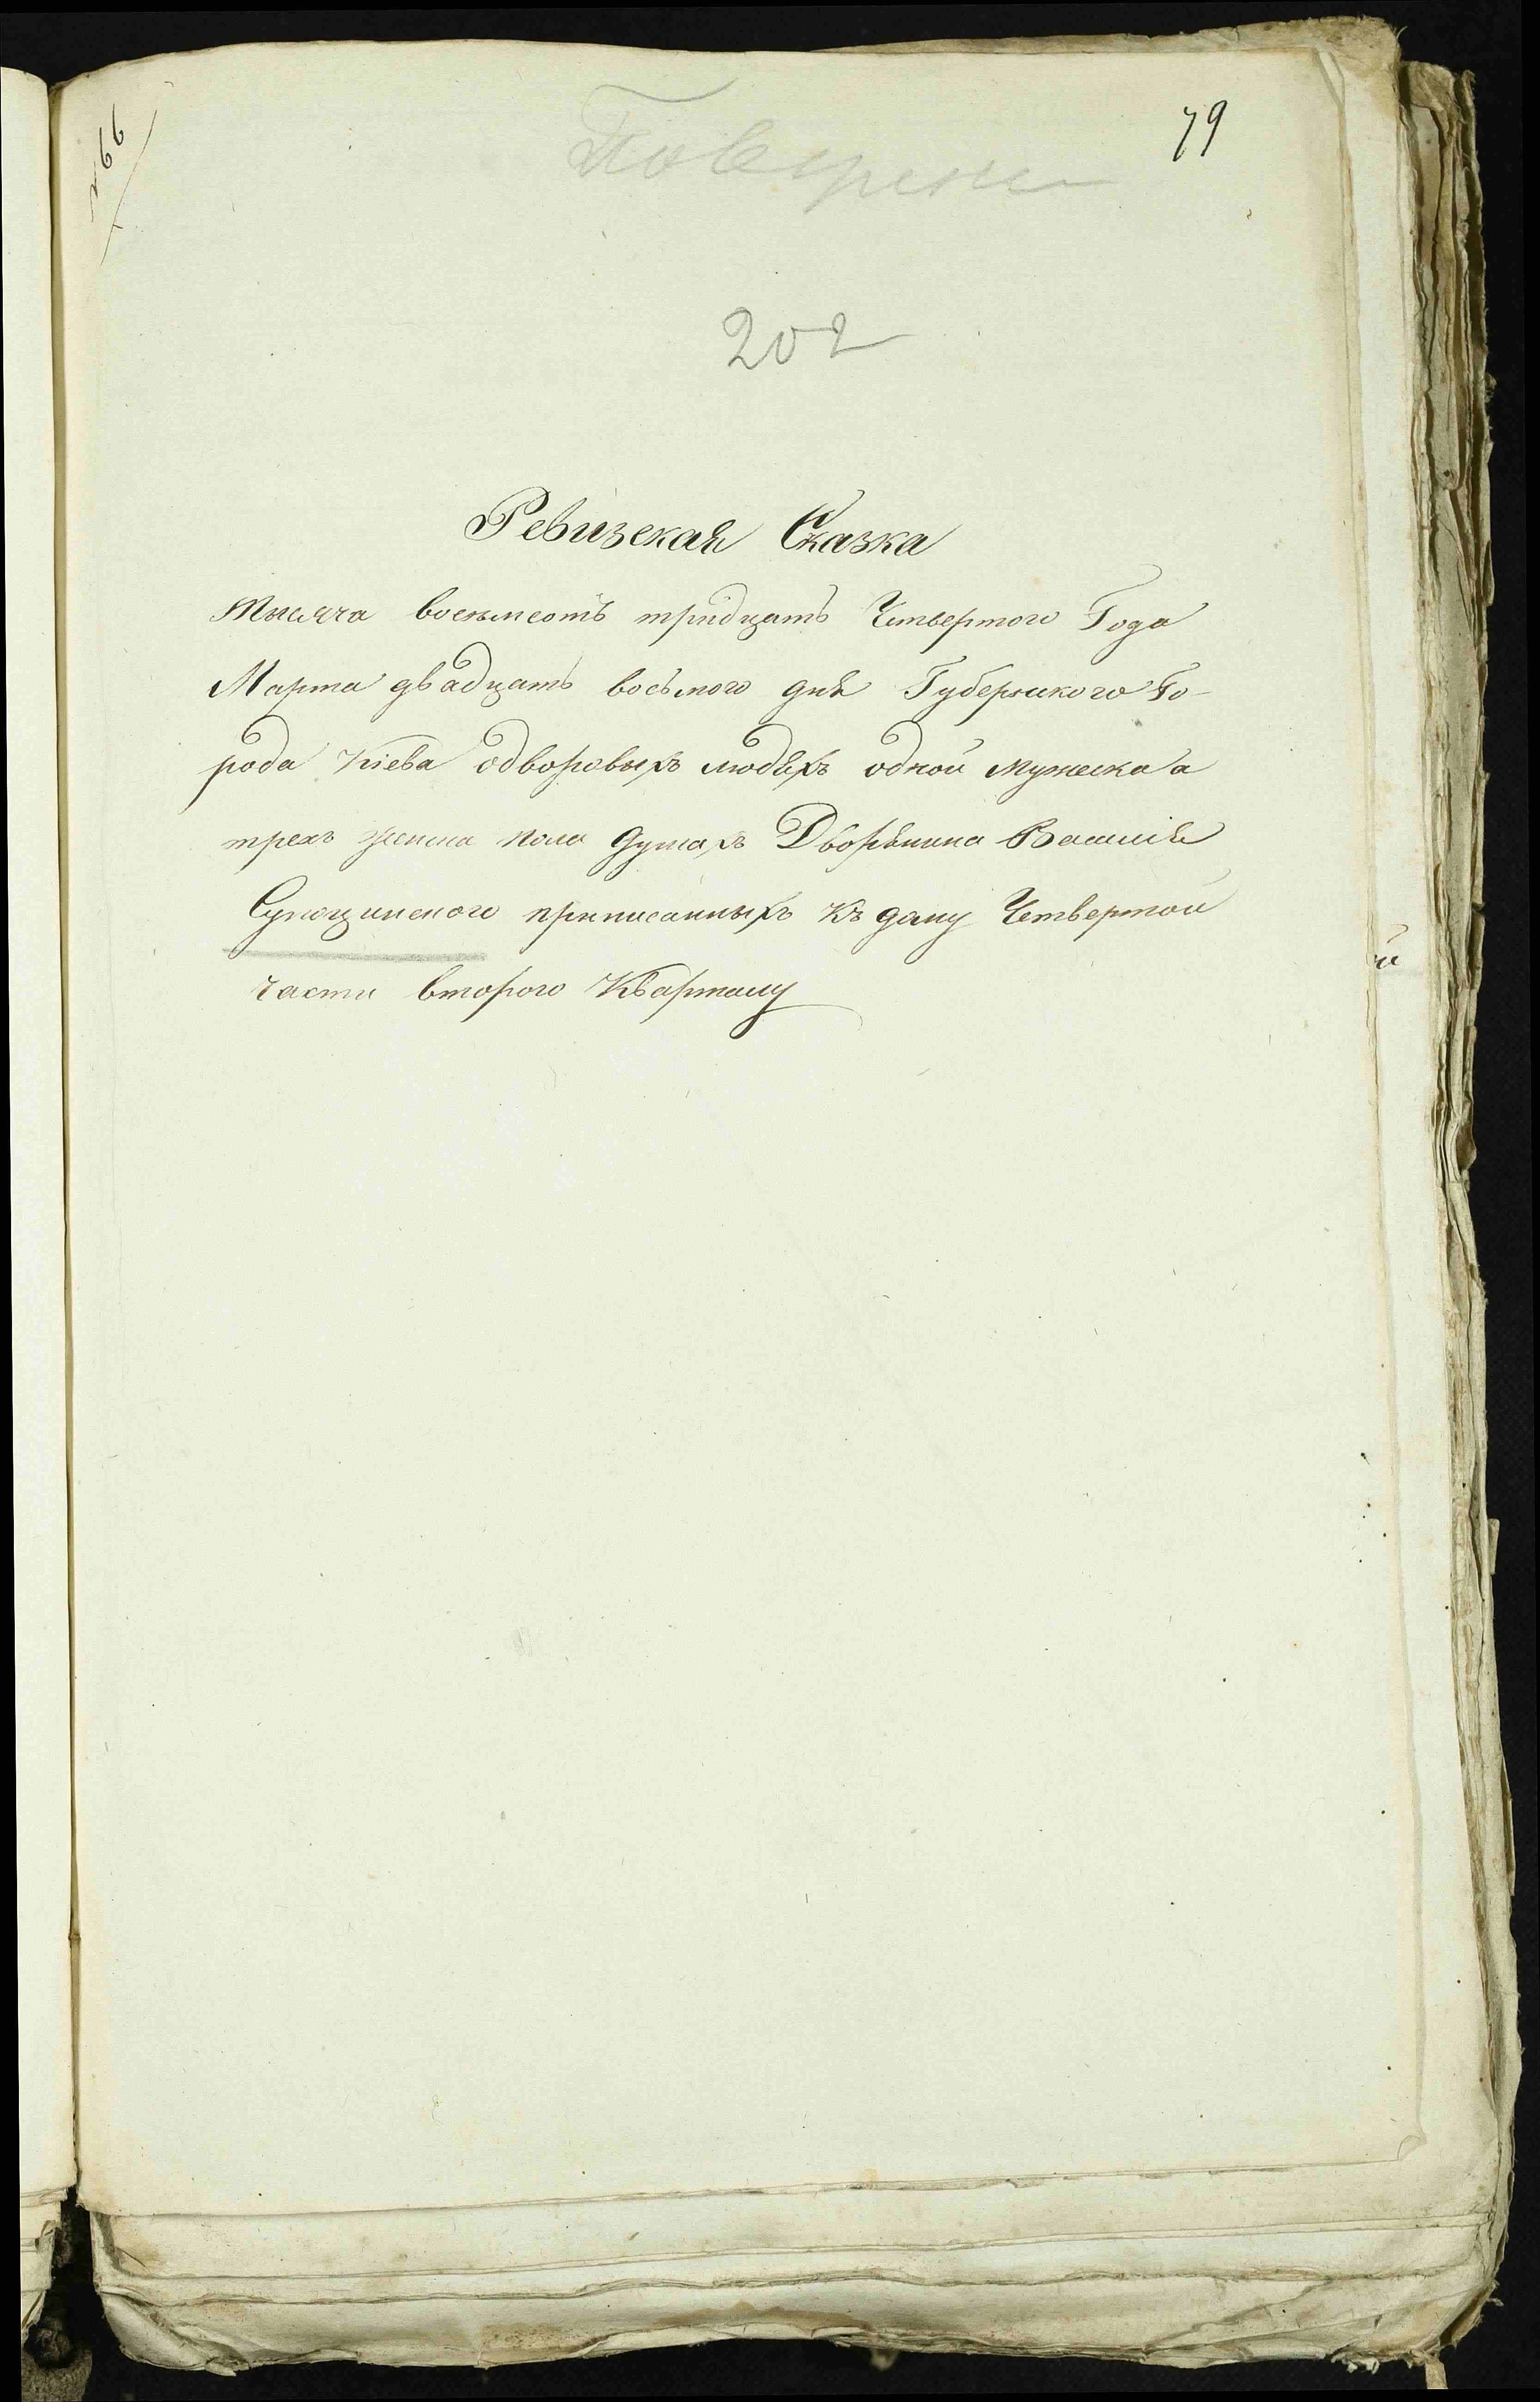 № 66
79
Поверено
202
Ревизская Сказка
Тысяча восемсотъ тридцать Четвертого Года
Марта двадцать восьмого дня Губернского Го-
рода Кіева одворовыхъ людяхъ одной мужеска а
трехъ женска пола душахъ Дворянина Василія
приписанныхъ къ дому Четвертой
части второго Кварталу
й